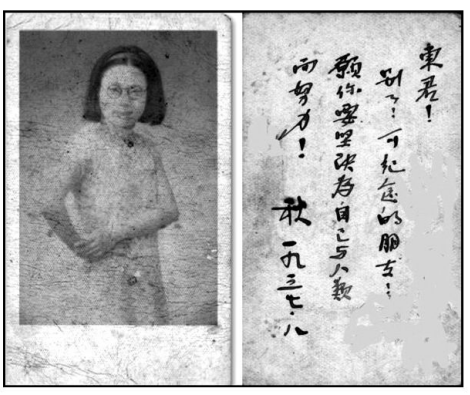 東君！
别了！可紀念的朋友！
願你要堅决為自己与人類
而努力！ 秋 一九三七·八